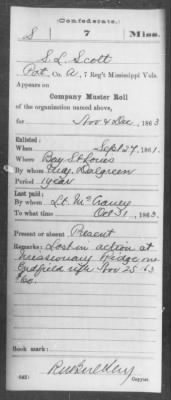 Confederate.
S 7 Miss.
S. L. Scott
Pvt, Co. A, 7 Reg't Mississippi Vols.
Appears on
Company Muster Roll
of the organization named above,
for Nov & Dec, 1863
Enlisted:
When Sept 27, 1861.
Where Bay St Louis
By whom Maj.
Period 1 year
Last paid:
By whom Lt.
To what time Oct 31, 1863.
Present or absent Present
Remarks: Lost in action at
Missionary Ridge one
Enfield rifle Nov 25 63
Book mark:
(642) Copyist.